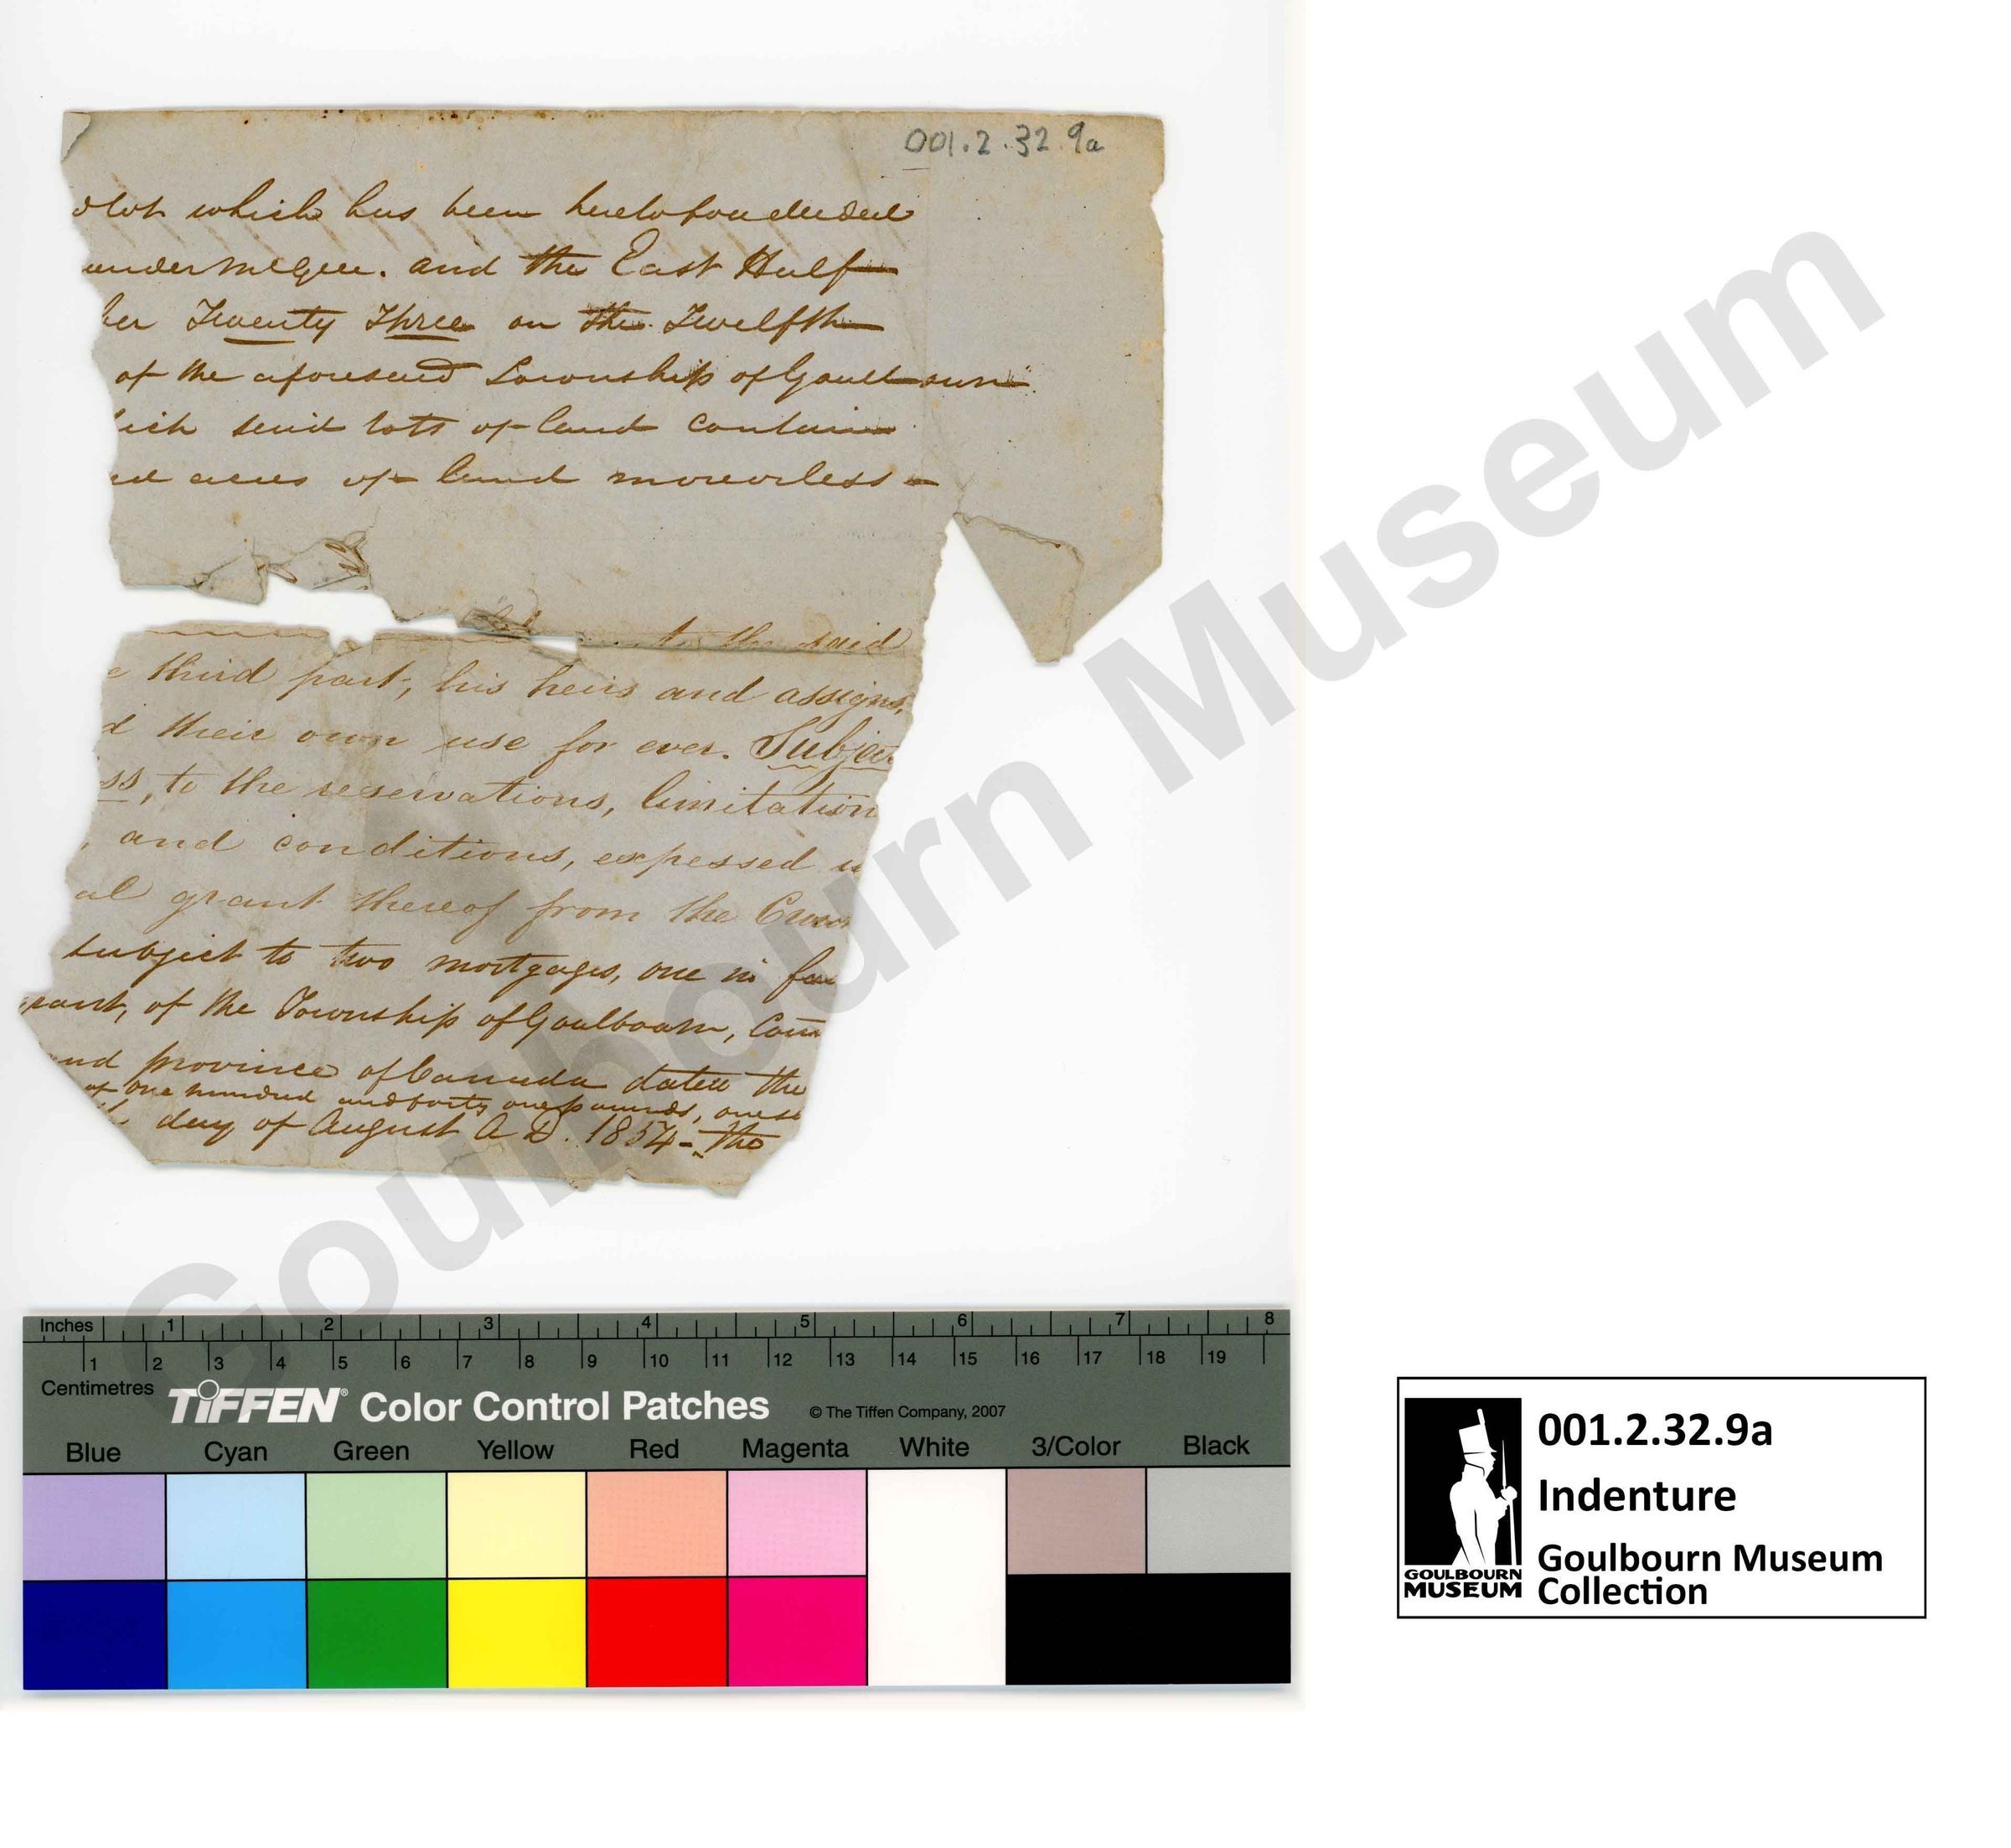 001.2.32.9a
lot which has been heretofore deeded
under McGee. and the East Half
ber Twenty Three on the Twelfth
of the aforesaid Township of Goulbourn
ich said lots of land contain
ed acres of land more or less
to the said
e third part, his heirs and assigns,
d their own use for ever. Subjec
ss, to the reservations, limitation
, and conditions, expessed i
al grant thereof from the Crow
subject to two mortgages, one in fav
of the Township of Goulbourn, Coun
and province of Canada dated the
of one hundred and forty one pounds, one
day of August A D. 1854 - The
Goulbourn Museum
Inches 1 2 3 4 5 6 7 8
1 2 3 4 5 6 7 8 9 10 11 12 13 14 15 16 17 18 19
Centimetres
TIFFEN® Color Control Patches © The Tiffen Company, 2007
Blue Cyan Green Yellow Red Magenta White 3/Color Black
001.2.32.9a
Indenture
Goulbourn Museum
Collection
GOULBOURN
MUSEUM